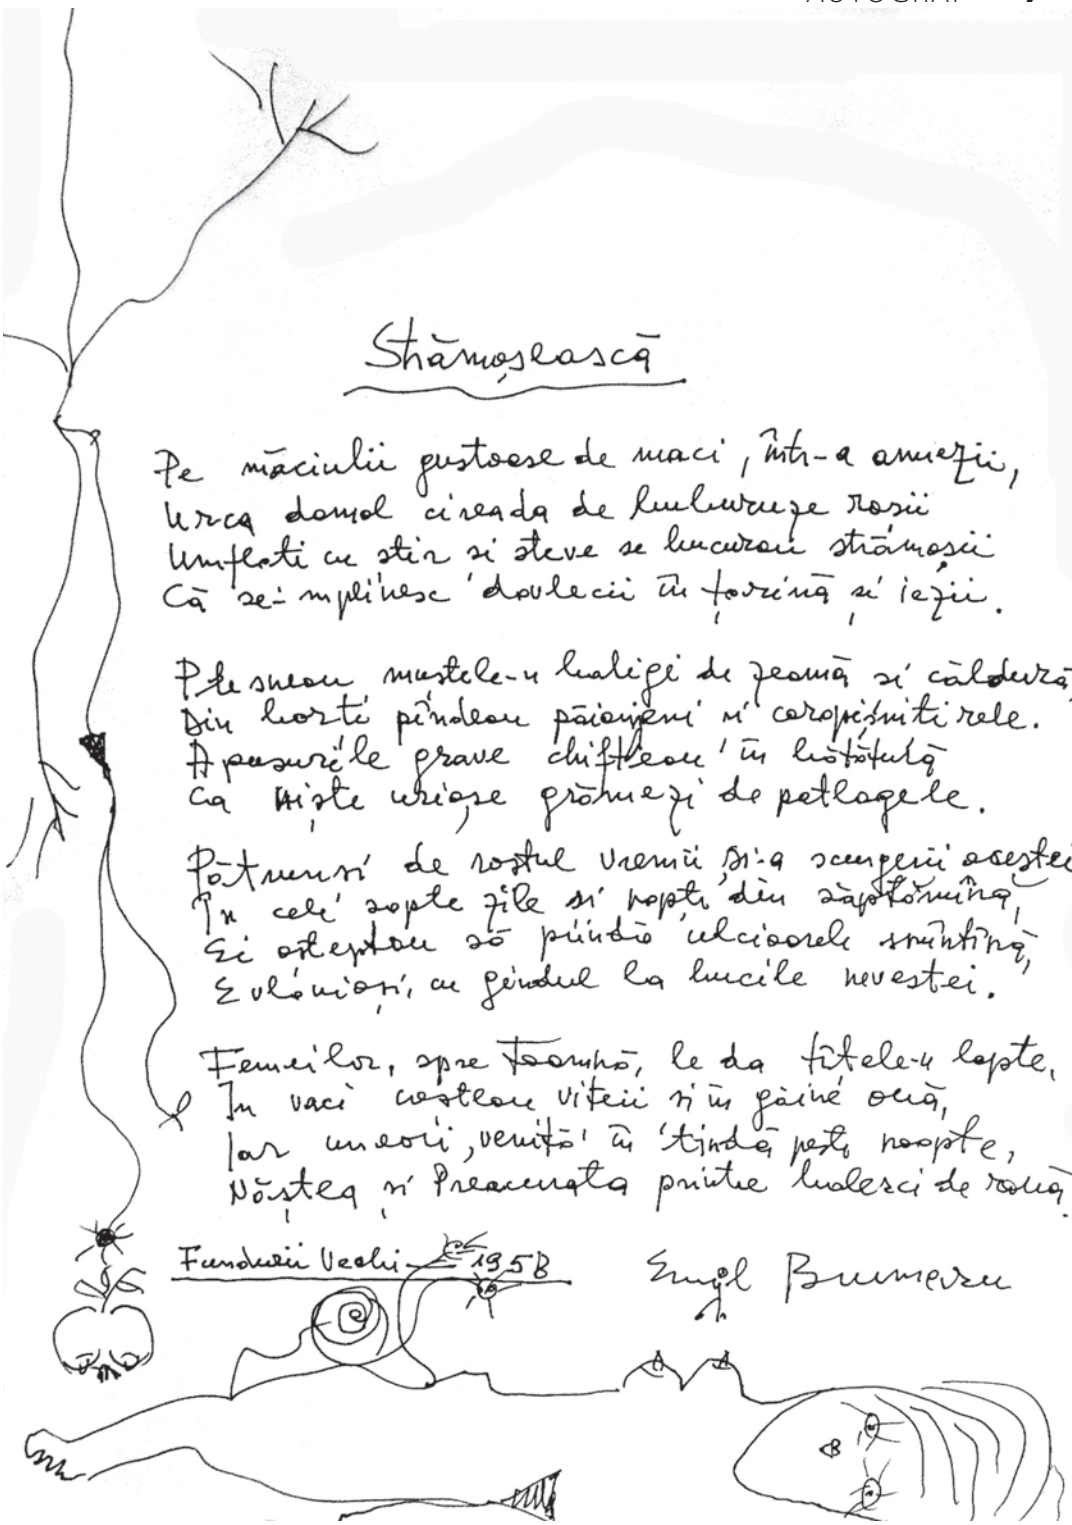 AUTOGRAF
Strămoșească
Pe măciulii gustoase de maci, într-a amiezii,
Urca domol cireada de buburuze rosii
Umflati cu stir si steve se bucurau strămosii
Că se-mplinesc dovlecii în țarină și iezii.
Plesneau mustele-n baligi de zeamă si căldură,
Din borti pîndeau păianjeni si coropisniti rele.
Apusurile grave chifteau în bătătură
Ca niște uriașe grămezi de patlagele.
Pătrunsi de rostul vremii și-a scurgerii acestei
In cele sapte zile si nopti din săptămînă,
Ei asteptau să prindă ulcioarele smîntînă,
Evlavioși, cu gîndul la bucile nevestei.
Femeilor, spre toamnă, le da țîtele-n lapte,
In vaci creșteau viței si în găini ouă,
Iar uneori, veniță în tindă peste noapte,
Năștea și Preacurata printre balerci de rouă.
Fundurii Vechi – 1958
Emil Brumaru